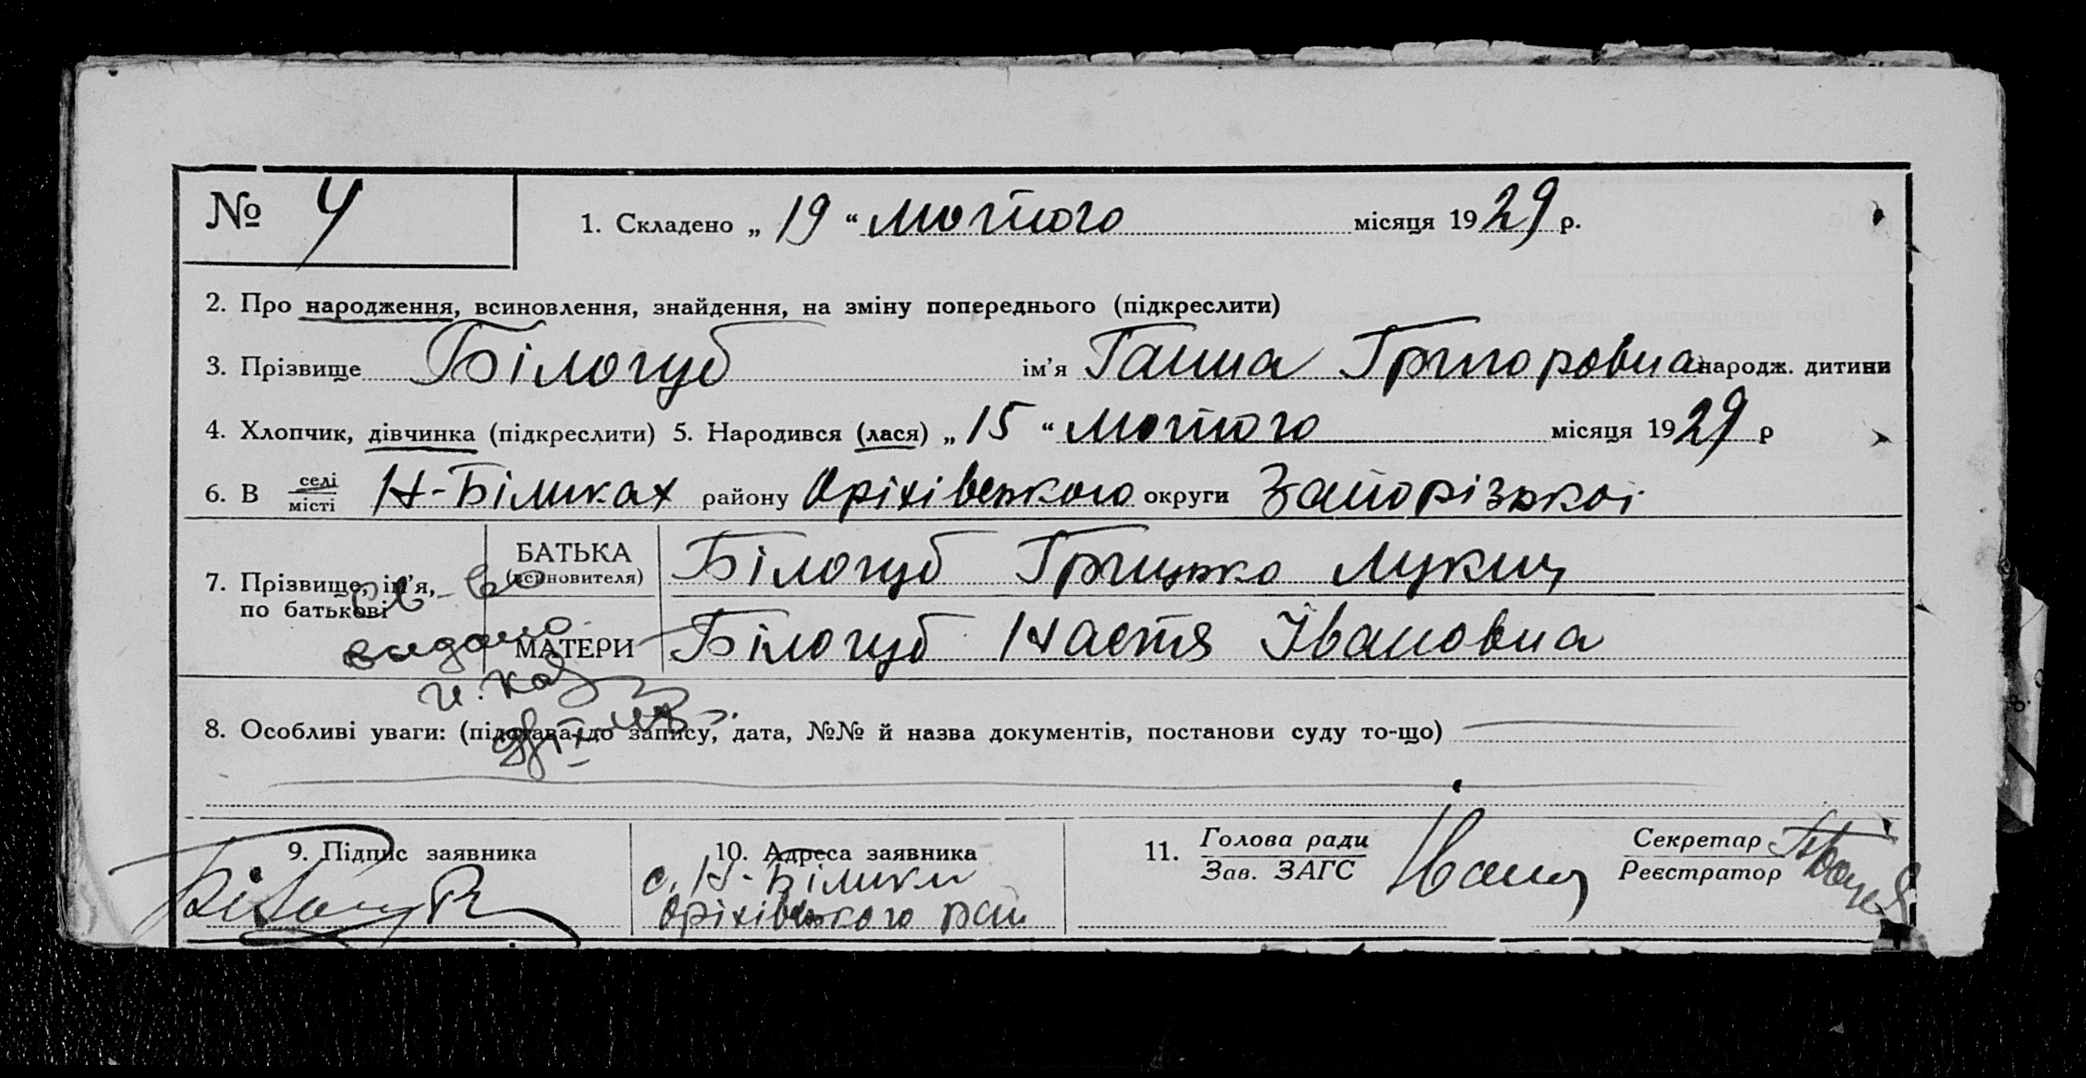 № 4
1. Складено „ 19 “ лютого місяця 1929 р.
2. Про народження, всиновлення, знайдення, на зміну попереднього (підкреслити)
3. Прізвище Білогуб ім’я Ганна Григоровна народж. дитини
4. Хлопчик, дівчинка (підкреслити) 5. Народився (лася) „ 15 “ лютого місяця 1929 р
6. В селі місті Н-Біликах району Оріхівського округи Запорізької
7. Прізвище, ім’я, по батькові
БАТЬКА (всиновителя) Білогуб Грицько Лукич
МАТЕРИ Білогуб Настя Івановна
видано
8. Особливі уваги: (підстава до запису, дата, №№ й назва документів, постанови суду то-що)
9. Підпис заявника
10. Адреса заявника
с. Н-Білики
Оріхівського рай
11. Голова ради
Зав. ЗАГС
Секретар
Реєстратор